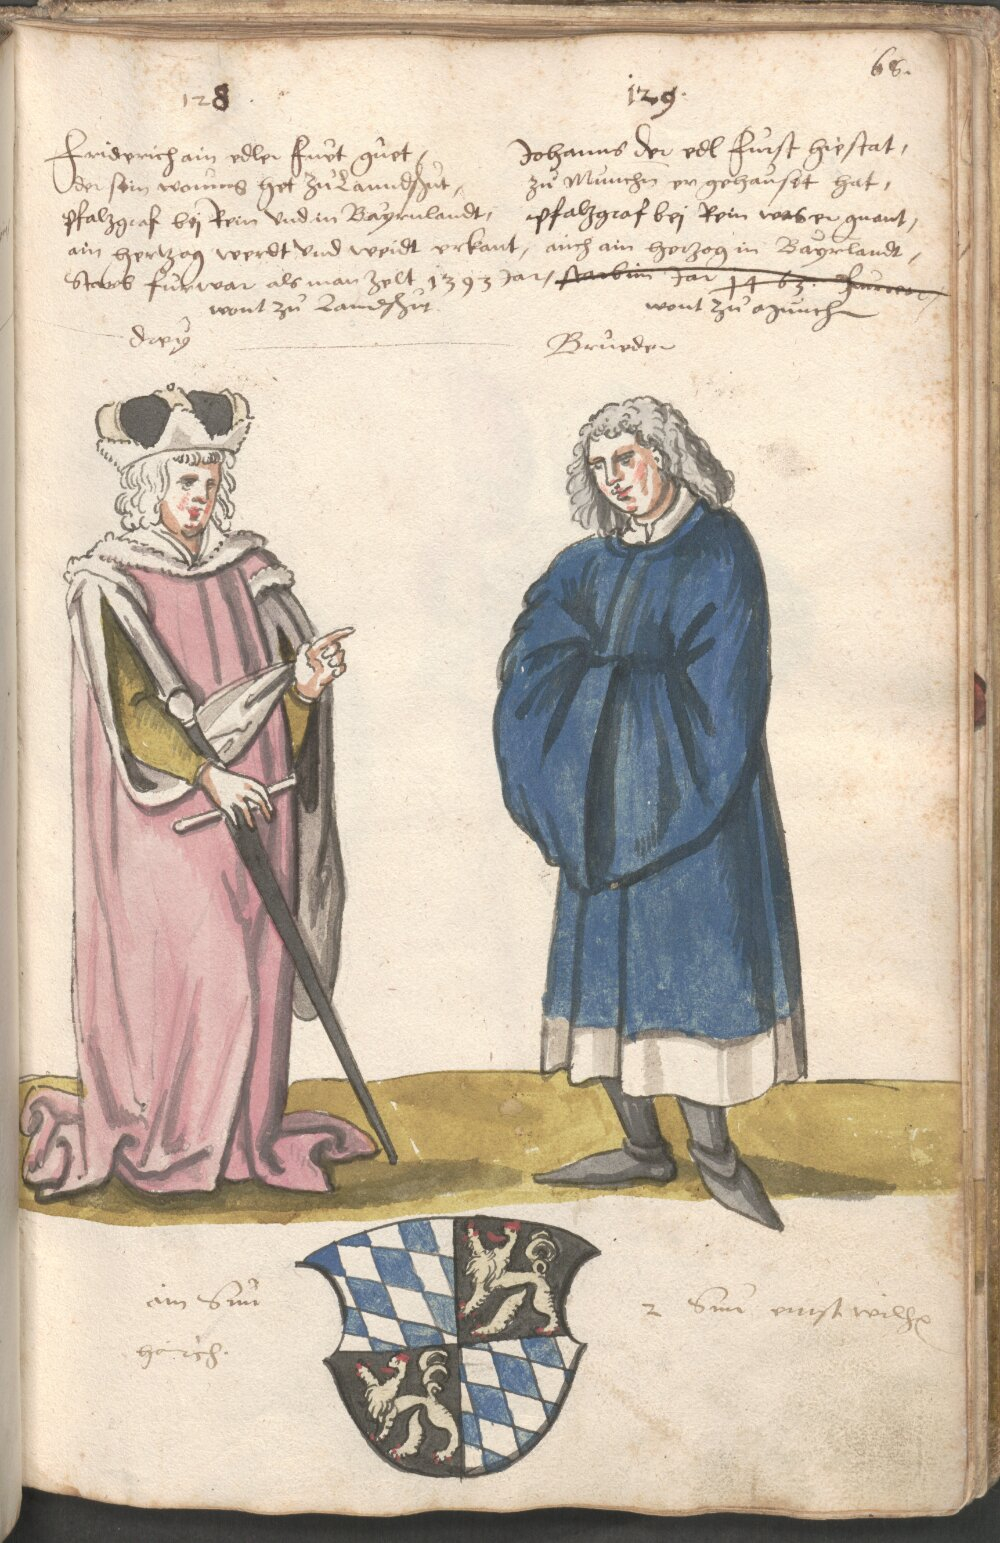 68.
128.
Friderich ain edler Fürst guet,
der sein wonung het zu Lanndshut,
pfalzgraf bej Rein und in Bayrnlandt,
ain hertzog werdt und weidt erkant,
Starb fürwar als man zelt 1393 Jar,
wont zu Landshut
129.
Johanns der edl Fürst hie stat,
zu Munchn er gehauset hat,
pfalzgraf bej Rein was er gnant,
auch ain herzog in Bayrlandt,
starb im Jar 1463. Fürwar,
wont zu Munchn
drey Brueder
ain Sun
2 Sun ernst wilh